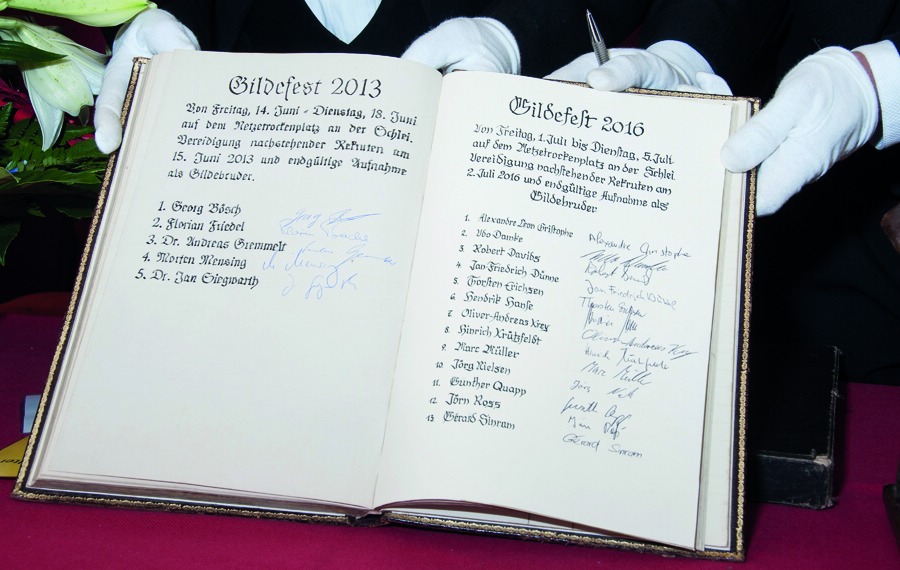 Gildefest 2013
Von Freitag, 14. Juni - Dienstag, 18. Juni
auf dem Netzetrockenplatz an der Schlei.
Vereidigung nachstehender Rekruten am
15. Juni 2013 und endgültige Aufnahme
als Gildebruder.
1. Georg Bösch
2. Florian Friedel
3. Dr. Andreas Gremmelt
4. Morten Mensing
5. Dr. Jan Siegwarth
Gildefest 2016
Von Freitag, 1. Juli bis Dienstag, 5. Juli
auf dem Netzetrockenplatz an der Schlei
Vereidigung nachstehender Rekruten am
2. Juli 2016 und endgültige Aufnahme als
Gildebruder
1. Alexandre Dron Cristophe Alexandre Cristophe
2 Udo Damke
3 Robert Davids
4 Jan Friedrich Dünne Jan Friedrich
5 Thorsten Erichsen Thorsten
6 Hendrik Hanse
7 Oliver-Andreas Krey Oliver-Andreas Krey
8 Hinrich Krützfeldt
9 Marc Müller Marc Müller
10 Jörg Nielsen Jörg
11 Gunther Quapp
12 Jörn Ross
13 Gérard Sinram Gérard Sinram